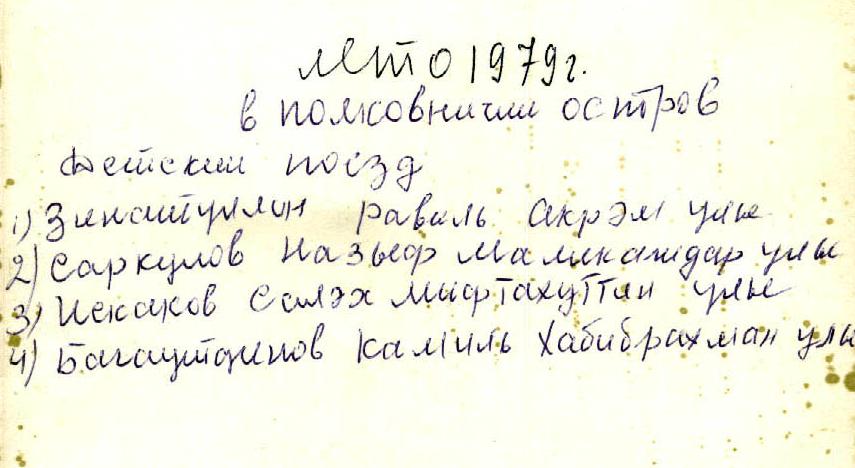 лето 1979г.
в полковничий остров
Детский поезд
1) Зинатуллин Равиль Акрэм улы
2) Саркулов Назьеф улы
3) Искаков Салэх Мифтахуттин улы
4) Багаутдинов Камиль Хабибрахман улы